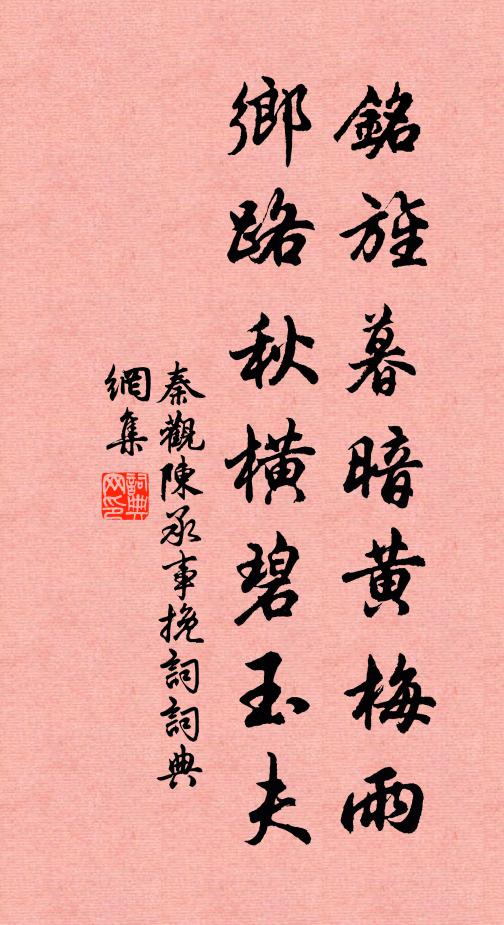 銘旌暮暗黄梅雨
鄉路秋横碧玉夫
秦觀陳承事挽詞詞典
網集
詞典
网印